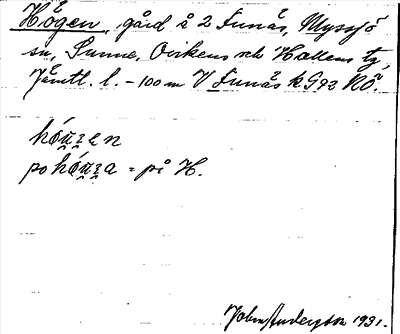 Högen, gård å 2 Funäs, Myssjö
sn, Sunne, Ovikens och Hallens tg,
Jämtl. l. – 100 m V Funäs k G 92 NÖ.
hó̱ṵʒen
po hó̱ṵʒa = på H.
John Anderson 1931.